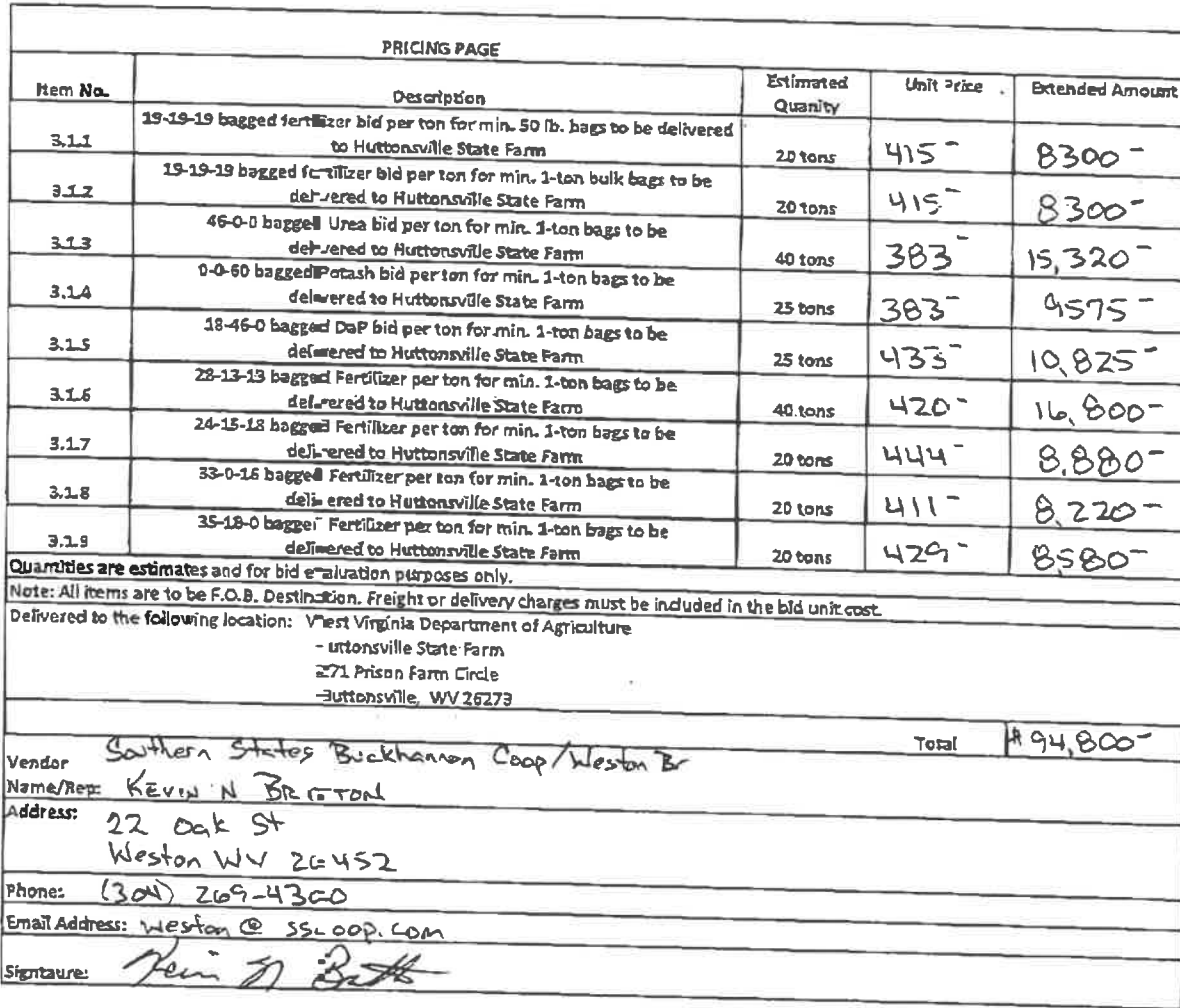 PRICING PAGE
Item No. Description Estimated Quanity Unit Price Extended Amount
3.1.1 19-19-19 bagged fertilizer bid per ton for min. 50 lb. bags to be delivered to Huttonsville State Farm 20 tons 415- 8300-
3.1.2 19-19-19 bagged fertilizer bid per ton for min. 1-ton bulk bags to be delivered to Huttonsville State Farm 20 tons 415 8300-
3.1.3 46-0-0 bagged Urea bid per ton for min. 1-ton bags to be delivered to Huttonsville State Farm 40 tons 383- 15,320-
3.1.4 0-0-60 bagged Potash bid per ton for min. 1-ton bags to be delivered to Huttonsville State Farm 25 tons 383- 9575-
3.1.5 18-46-0 bagged DaP bid per ton for min. 1-ton bags to be delivered to Huttonsville State Farm 25 tons 433- 10,825-
3.1.6 28-13-13 bagged Fertilizer per ton for min. 1-ton bags to be delivered to Huttonsville State Farm 40 tons 420- 16,800-
3.1.7 24-15-18 bagged Fertilizer per ton for min. 1-ton bags to be delivered to Huttonsville State Farm 20 tons 444- 8,880-
3.1.8 33-0-16 bagged Fertilizer per ton for min. 1-ton bags to be delivered to Huttonsville State Farm 20 tons 411- 8,220-
3.1.9 35-18-0 bagged Fertilizer per ton for min. 1-ton bags to be delivered to Huttonsville State Farm 20 tons 429- 8580-
Quantities are estimates and for bid evaluation purposes only.
Note: All items are to be F.O.B. Destination. Freight or delivery charges must be included in the bid unit cost.
Delivered to the following location: West Virginia Department of Agriculture
Huttonsville State Farm
271 Prison Farm Circle
Huttonsville, WV 26273
Total $94,800-
Vendor Southern States Buckhannon Coop/Weston Br
Name/Rep: KEVIN N BRITTON
Address: 22 Oak St
Weston WV 26452
Phone: (304) 269-4300
Email Address: weston@sscoop.com
Signtaure: